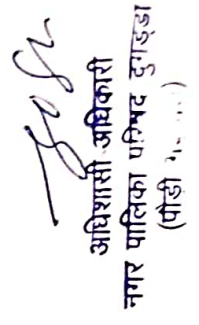 अधिशासी अधिकारी
नगर पालिका परिषद दुगड्डा
(पौड़ी